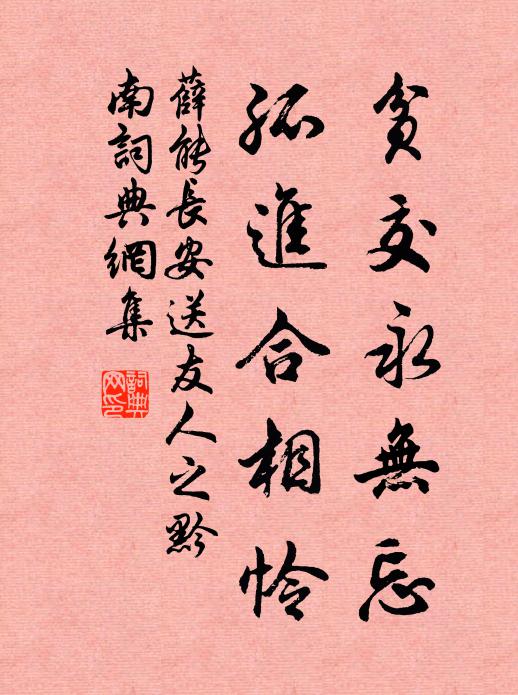 貧交永無忘
孤進合相憐
薛能長安送友人之黔
南詞典網集
詞典
网印